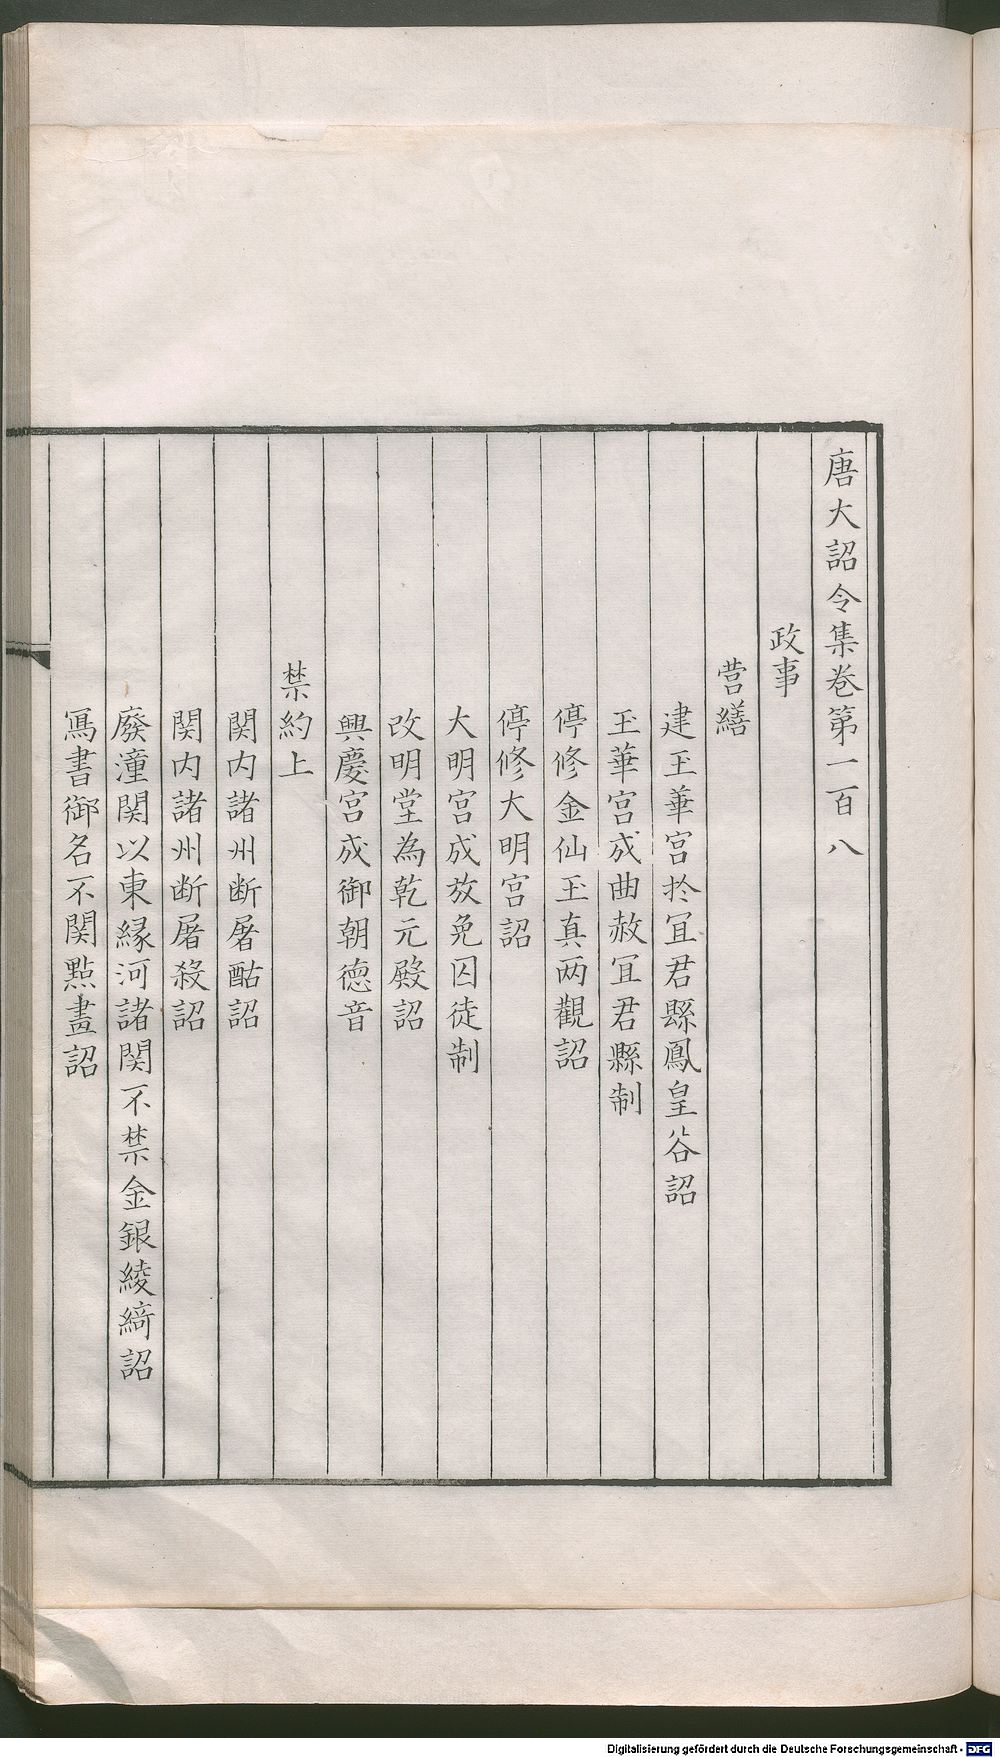 唐大詔令集卷第一百八
政事
营繕
建玉華宮扵冝君縣鳳皇谷詔
玉華宮成曲赦冝君縣制
停修金仙玉真两觀詔
停修大明宮詔
大明宮成放免囚徒制
改明堂為乾元殿詔
興慶宮成御朝德音
禁約上
関内諸州断屠酤詔
関内諸州断屠殺詔
廢潼関以東縁河諸関不禁金銀綾綺詔
冩書御名不関點畫詔
Digitalisierung gefördert durch die Deutsche Forschungsgemeinschaft - DFG